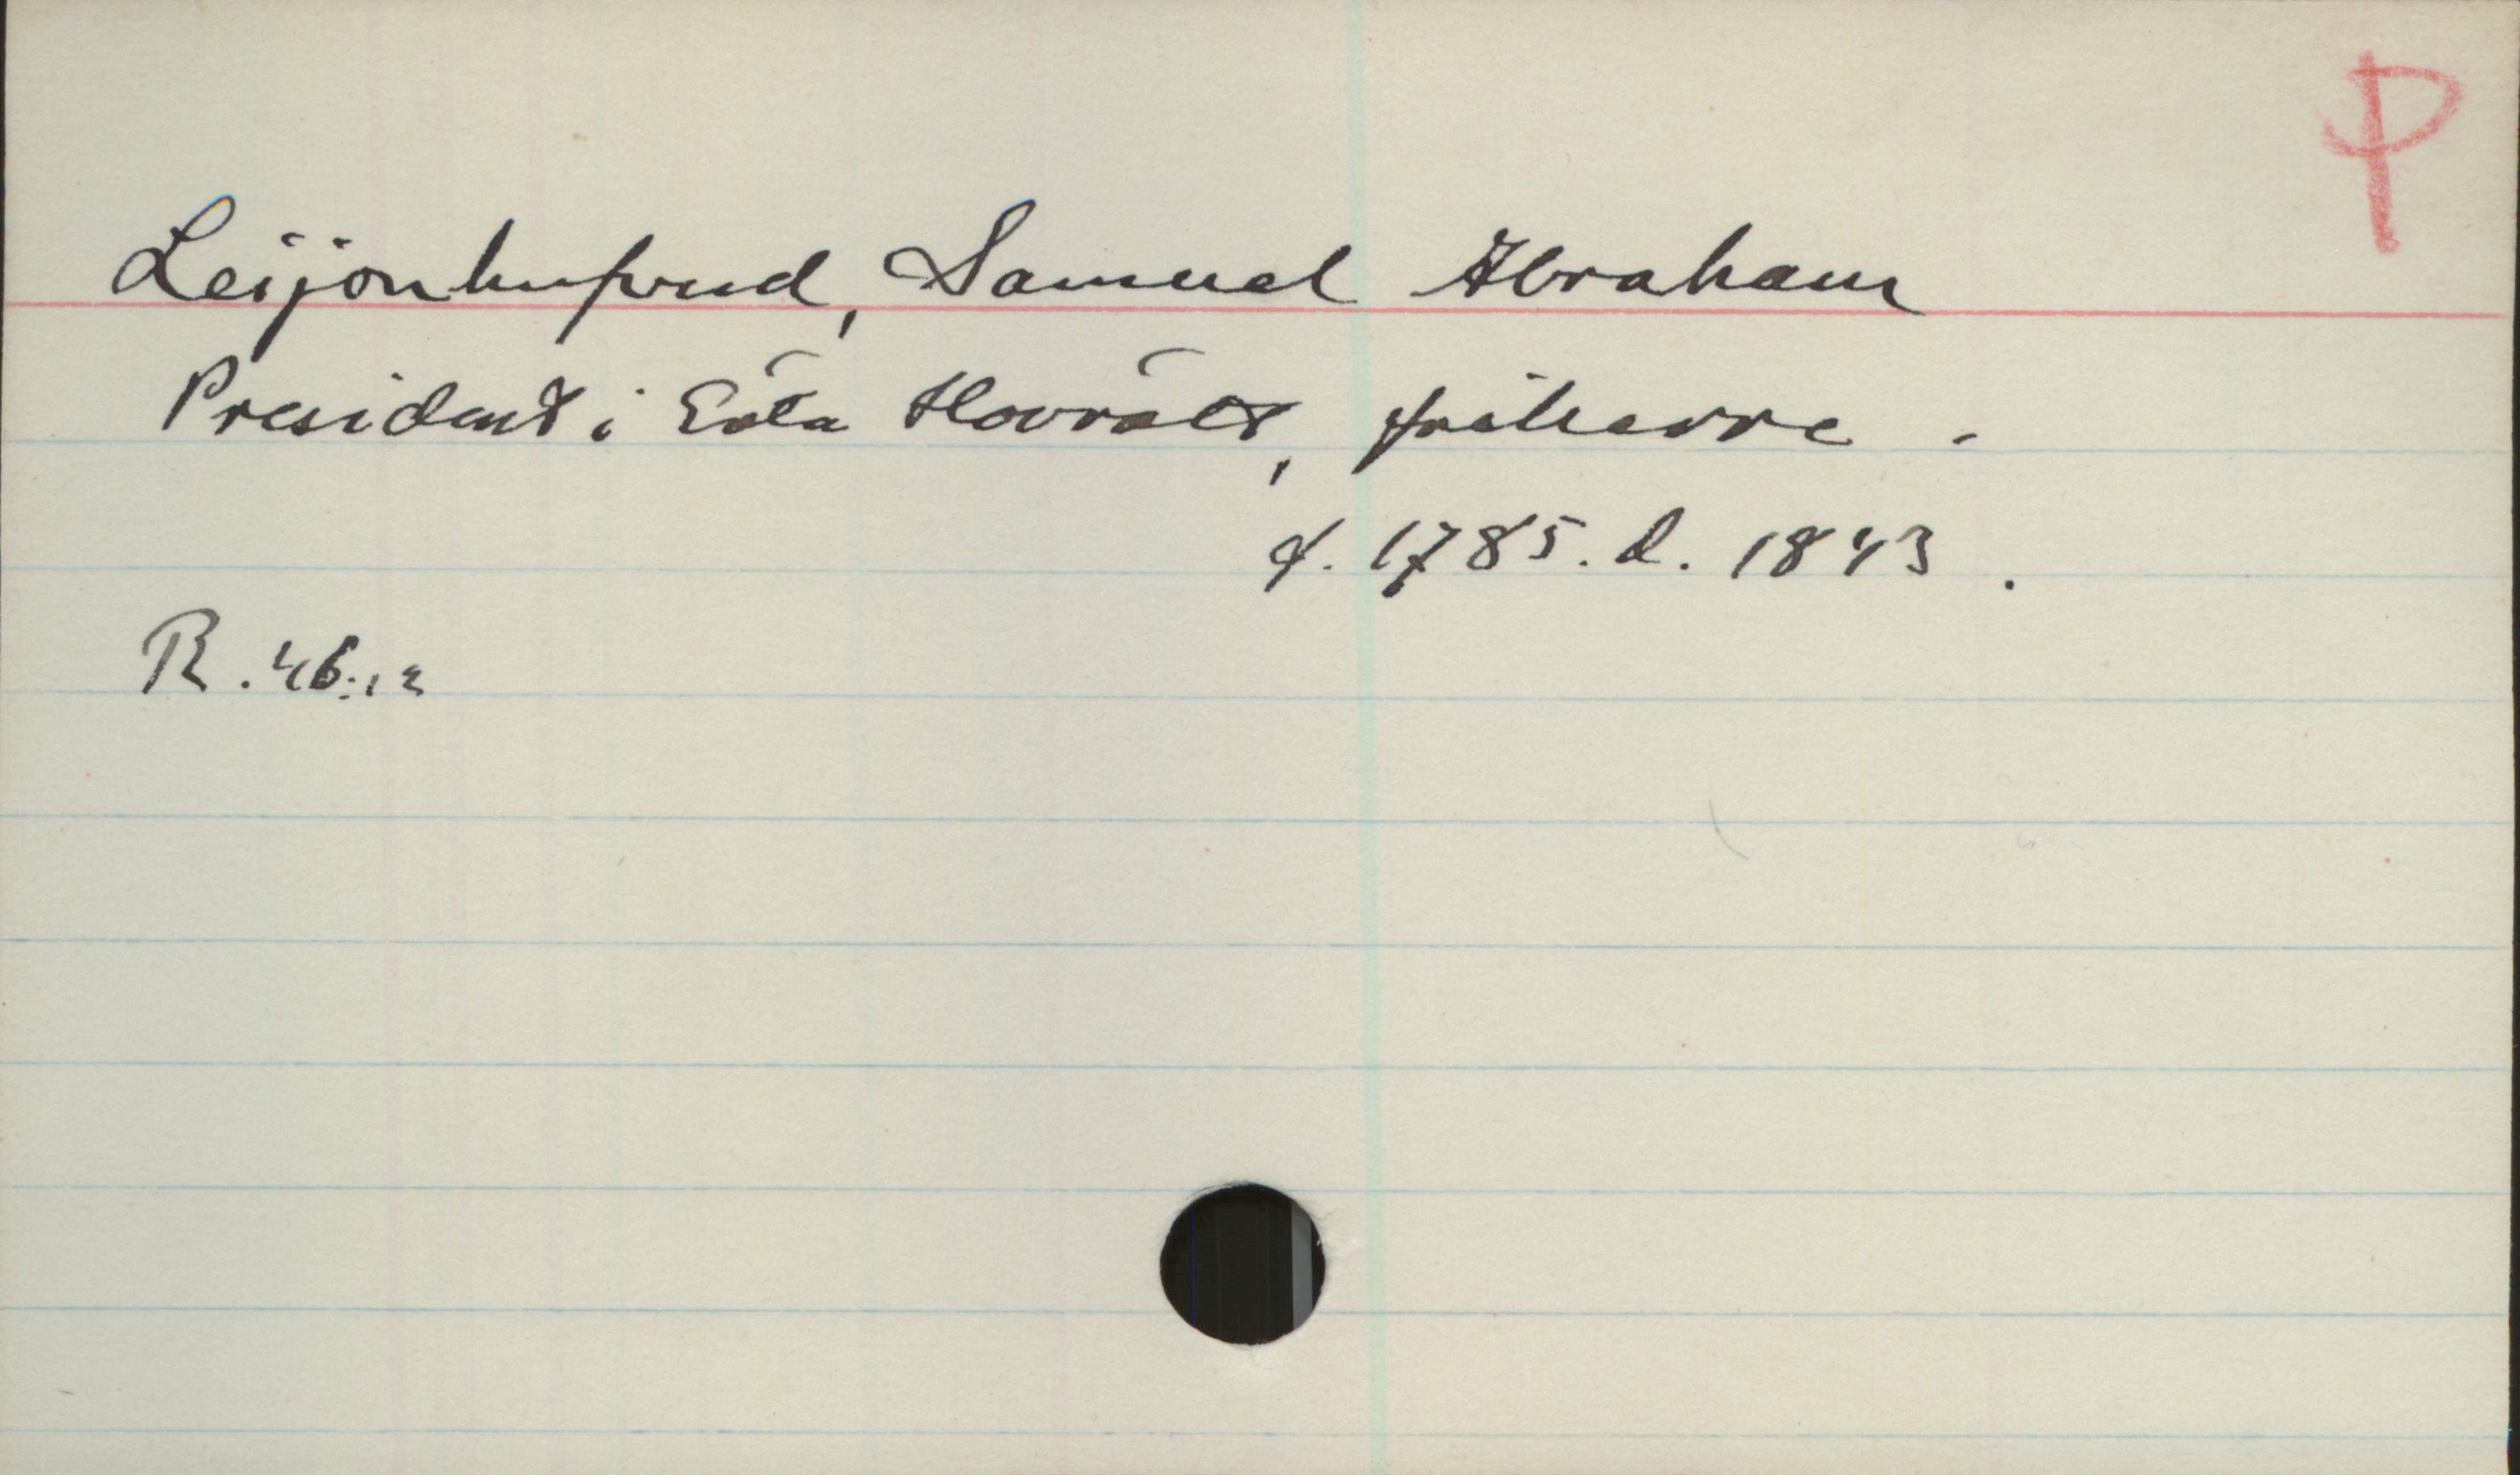 P
Leijonhufvud, Samuel Abraham
President i Göta Hovrätt, friherre.
f. 1785. d. 1843.
R. 46:12